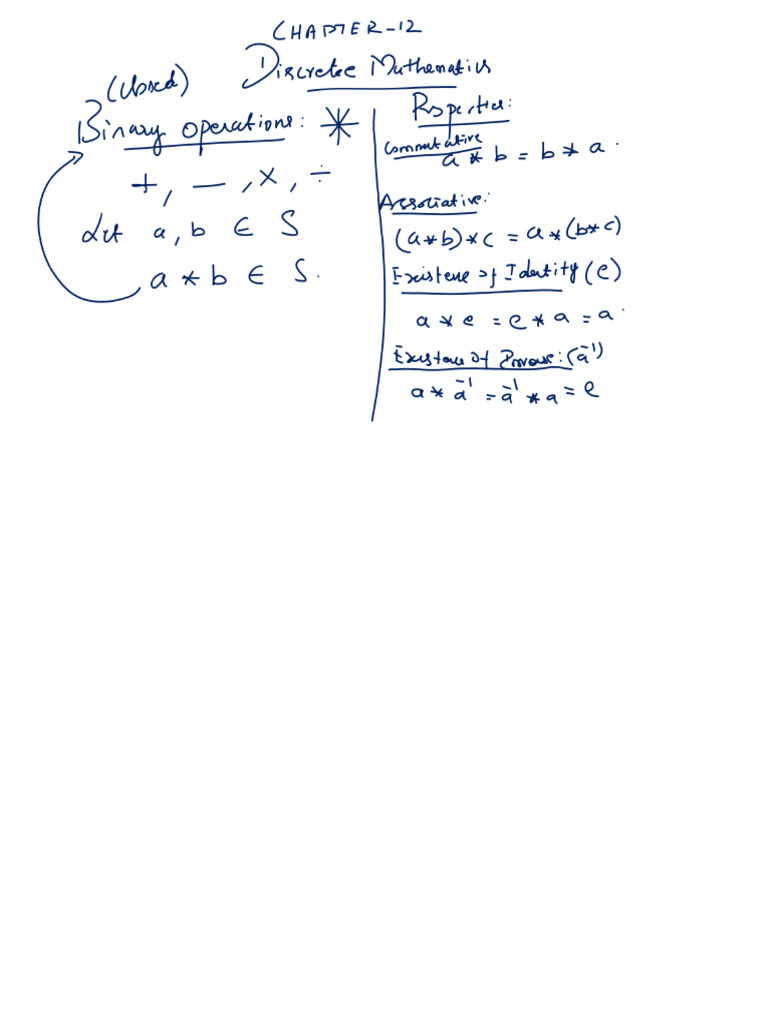 CHAPTER-12
Discrete Mathematics
(closed)
Binary operations: *
+, —, ×, ÷
Let a, b ∈ S
a * b ∈ S.
Properties:
Commutative
a * b = b * a.
Associative:
(a*b)*c = a*(b*c)
Existene of Identity (e)
a * e = e * a = a.
Existence of : (a⁻¹)
a * a⁻¹ = a⁻¹ * a = e